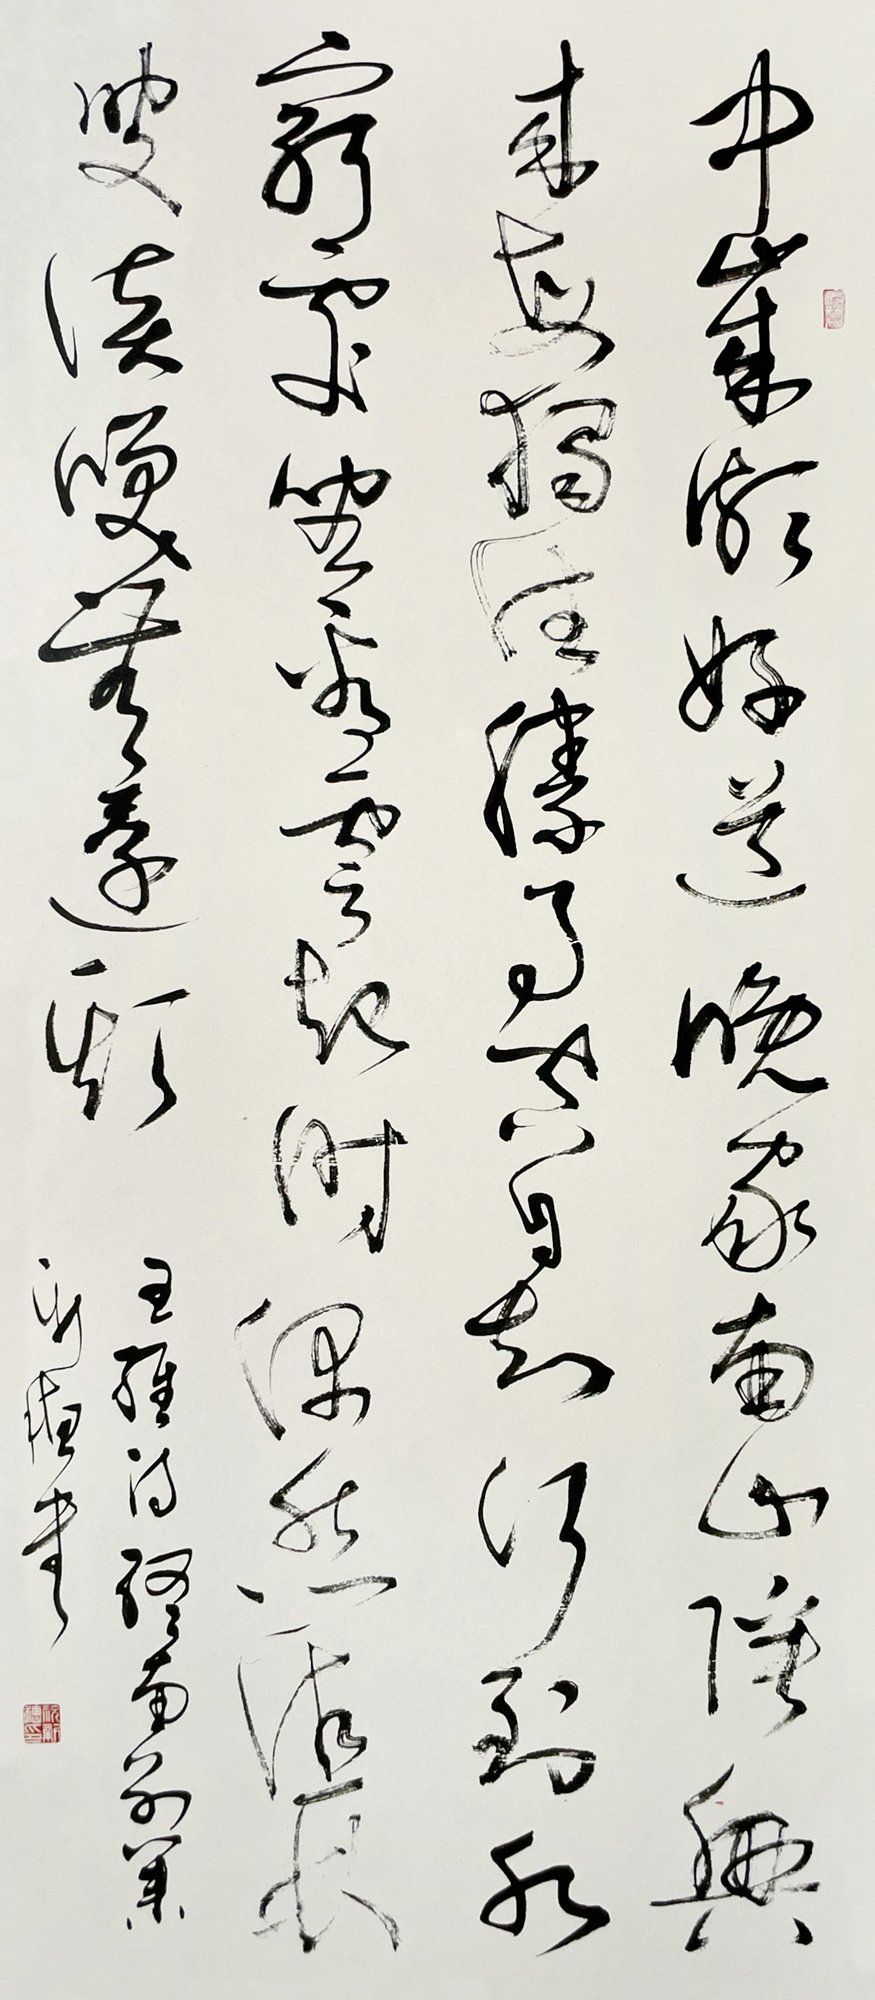 中歲頗好道晚家南山陲興
來每獨往勝事空自知行到水
窮處坐看雲起時偶然值林
叟談笑無還期
王維詩終南別業
新德書